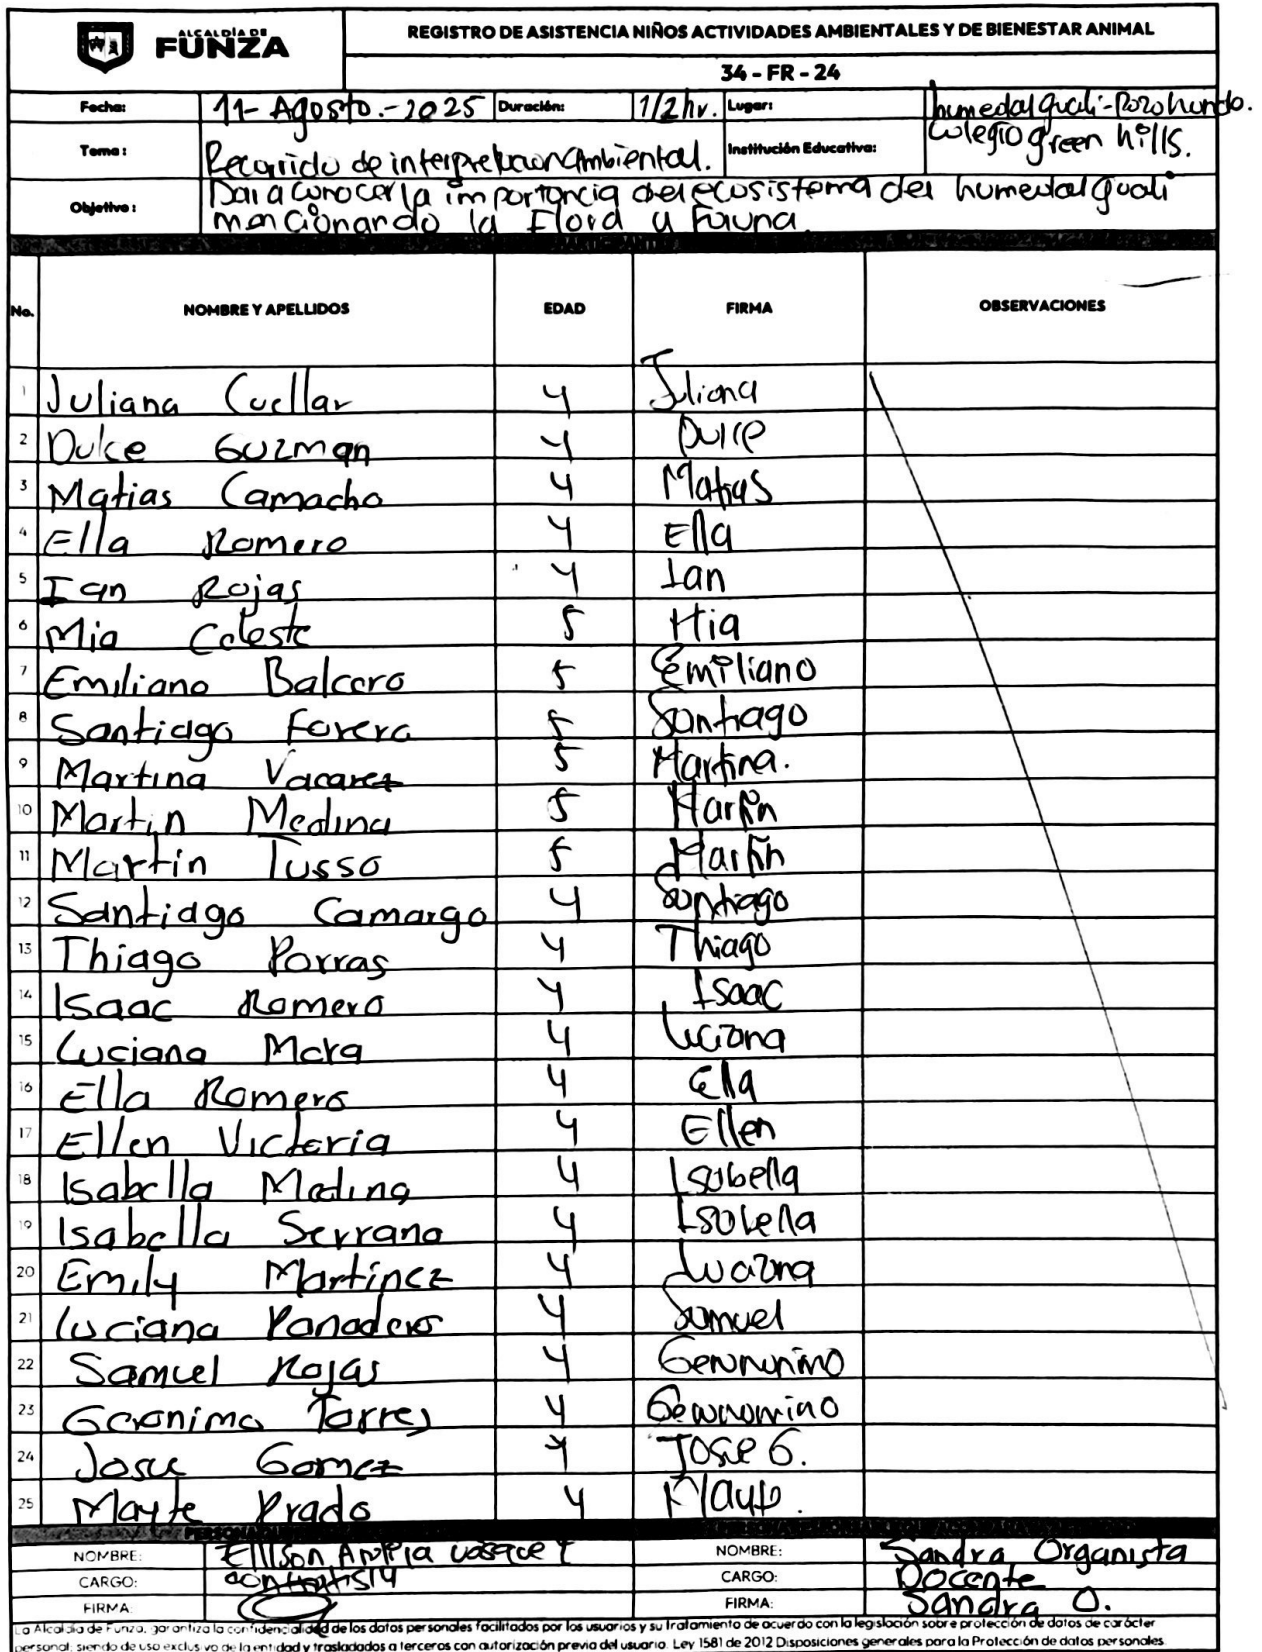 ALCALDÍA DE
FUNZA
REGISTRO DE ASISTENCIA NIÑOS ACTIVIDADES AMBIENTALES Y DE BIENESTAR ANIMAL
34 - FR - 24
Fecha: 11-Agosto.-2025 Duración: 1/2 hr. Lugar: humedal gualí-Pozo hundo.
Tema: Recorrido de interpretacion Ambiental. Institución Educativa: Colegio green hills.
Objetivo: Dar a conocer la importancia del ecosistema del humedal gualí
mencionando la Flora y Fauna.
No. NOMBRE Y APELLIDOS EDAD FIRMA OBSERVACIONES
1 Juliana Cuellar 4 Juliana
2 Dulce Guzman 4 Dulce
3 Matias Camacho 4 Matias
4 Ella Romero 4 Ella
5 Ian Rojas 4 Ian
6 Mia Celeste 5 Mia
7 Emiliano Balcero 5 Emiliano
8 Santiago Forero 5 Santiago
9 Martina Vacarez 5 Martina.
10 Martin Medina 5 Martin
11 Martin Tusso 5 Martin
12 Santiago Camargo 4 Santiago
13 Thiago Porras 4 Thiago
14 Isaac Romero 4 Isaac
15 Luciana Mora 4 Luciana
16 Ella Romero 4 Ella
17 Ellen Victoria 4 Ellen
18 Isabella Medina 4 Isabella
19 Isabella Serrano 4 Isabella
20 Emily Martinez 4 Luciana
21 Luciana Panadero 4 Samuel
22 Samuel Rojas 4
23 Geronimo Torres 4
24 Josue Gomez 4 Josue G.
25 Mayte Prado 4 Mayte.
NOMBRE: NOMBRE: Sandra Organista
CARGO: contratista CARGO: Docente
FIRMA: FIRMA: Sandra O.
La Alcaldía de Funza, garantiza la confidencialidad de los datos personales facilitados por los usuarios y su tratamiento de acuerdo con la legislación sobre protección de datos de carácter
personal; siendo de uso exclusivo de la entidad y trasladados a terceros con autorización previa del usuario. Ley 1581 de 2012 Disposiciones generales para la Protección de datos personales